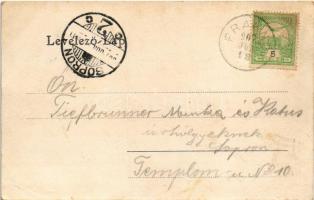 Levelező-Lap
SOPRON
On
Tiefbrunner Munka és Hatus
urhölgyeknek
Sopron
Templom u No 10.